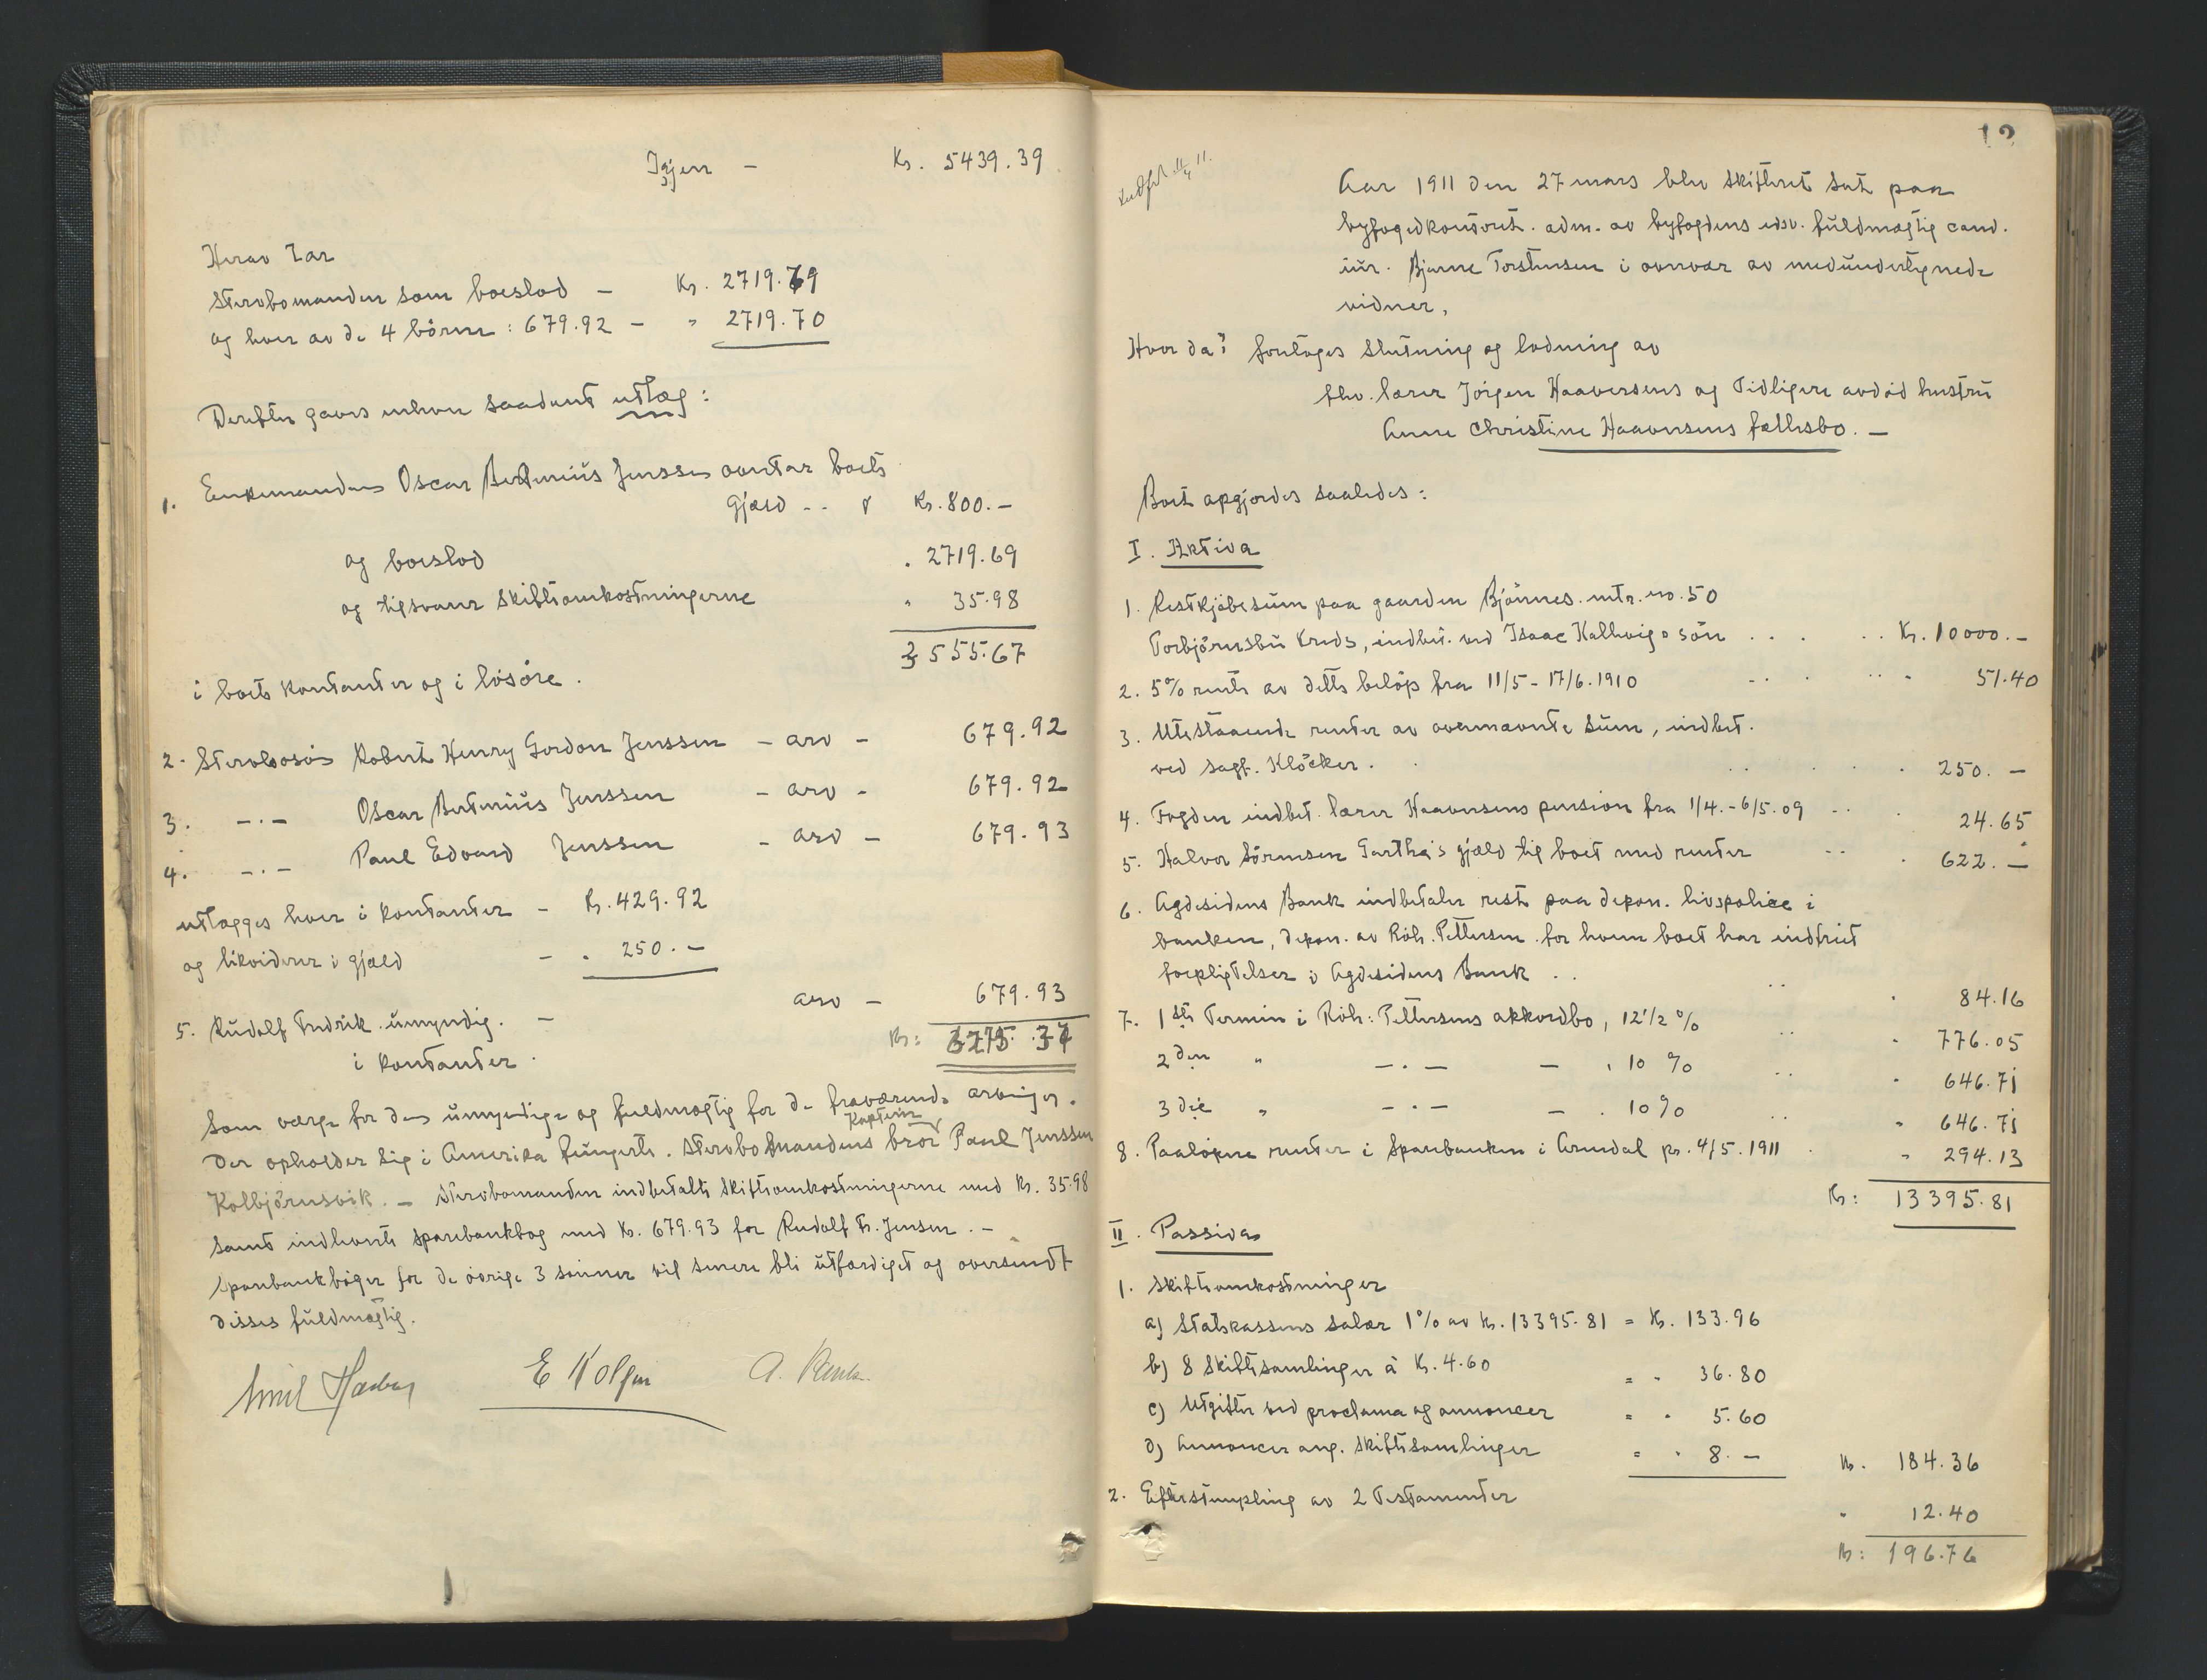 Igjen - Kr. 5439.39
Herav tar
Stervbomanden som boeslod - Kr. 2719.69
og hver av de 4 börn : 679.92 - " 2719.70
Derefter gaves enhver saadant utlæg :
1. Enkemanden Oscar Bertinius Jenssen overtar boets
gjæld - - Kr. 800.-
og boeslod " 2719.69
og tilsvarer skifteomkostningerne " 35.98
3555.67
i boets kontanter og i lösöre.
2. Stervbosön Robert Henry Gordon Jenssen - arv - 679.92
3. -"- Oscar Bertinius Jenssen - arv - 679.92
4. -"- Paul Edvard Jenssen - arv - 679.93
utlægges hver i kontanter - Kr. 429.92
og likviderer i gjæld - " 250.-
5. Rudolf Fredrik umyndig. - arv - 679.93
i kontanter. Kr: 6275.37
Som værge for den umyndige og fuldmægtig for de fraværende arvinger.
Der opholder sig i Amerika fungerte. Stervbomandens bror Kaptein Paul Jenssen
Kolbjörnsvik. - Stervbomanden indbetalte Skifteomkostningerne med Kr. 35.98
samt indleverte sparebankbog med Kr. 679.93 for Rudolf Fr. Jensen. -
Sparebankböger for de övrige 3 sönner vil senere bli utfærdiget og oversendt
disses fuldmægtig.
Emil E Kolfin A.
12
Aar 1911 den 27 mars blev skifteret sat paa
byfogedkontoret. adm. av byfogdens edsv. fuldmægtig cand.
jur. Bjarne Torstensen i overvær av medundertegnede
vidner.
Hvor da: foretoges Slutning og lodning av
fhv. lærer Jörgen Haavorsens og tidligere avdöd hustru
Anne Christine Haavorsens fællesbo. -
Boet opgjordes saaledes :
I. Aktiva
1. Restkjöbesum paa gaarden Bjönnes mtr. no. 50
Torbjörnsbu kreds, indbet. ved Isaac Kallevigs sön . . . . . Kr. 10000.-
2. 5% rente av dette belöp fra 11/5 - 17/6. 1910 51.40
3. Utestaaende renter av ovennævnte Sum, indbet.
ved sagf. Klöcker . . 250.-
4. Fogden indbet. lærer Haavorsens pension fra 1/4. - 6/5.09 24.65
5. Halvor Sörensen Gartha's gjæld til boet med renter 622.-
6. Agdesidens Bank indbetaler rest paa depon. livspolice i
banken, depon. av Röh. Pettersen for hvem boet har indfriet
forpligtelser i Agdesidens Bank . . 84.16
7. 1ste Termin i Röh: Pettersens akkordbo, 12 1/2 % " 776.05
2den " -"- - " 10 % " 646.71
3die " -"- - " 10 % " 646.71
8. Paalöpne renter i Sparebanken i Arendal pr. 4/5. 1911 " 294.13
Kr: 13395.81
II. Passiva
1. Skifteomkostninger
a) Statskassens salær 1% av Kr. 13395.81 = Kr. 133.96
b) 8 Skiftesamlinger à Kr. 4.60 = " 36.80
c) Utgifter ved proclama og annoncer = " 5.60
d) Annoncer ang. Skiftesamlinger = " 8.- Kr. 184.36
2. Efterstempling av 2 Testamenter " 12.40
Kr: 196.76